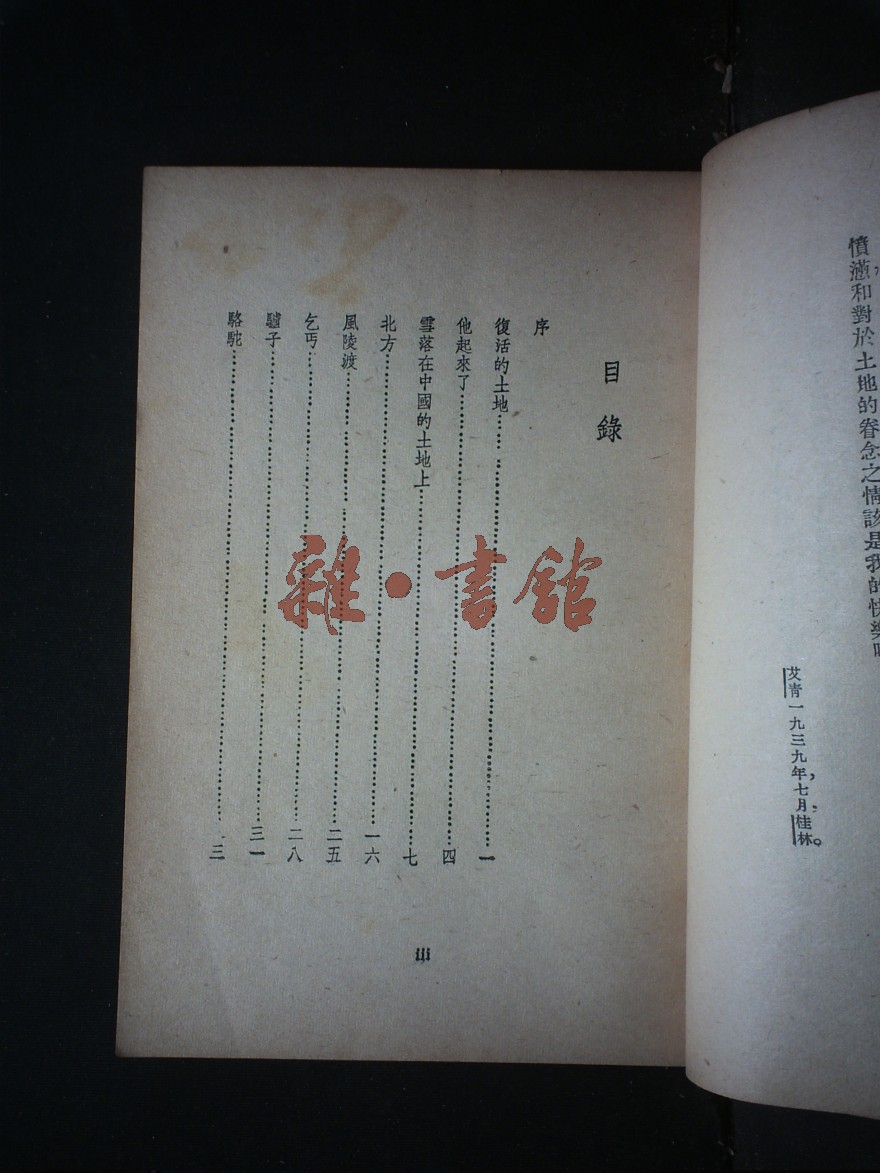 憤懣和對於土地的眷念之情該是我的快樂
艾青一九三九年，七月，桂林。
目錄
序
復活的土地……一
他起來了……四
雪落在中國的土地上……七
北方……一六
風陵渡……二五
乞丐……二八
驢子……三一
駱駝……三
iii
雜·書館